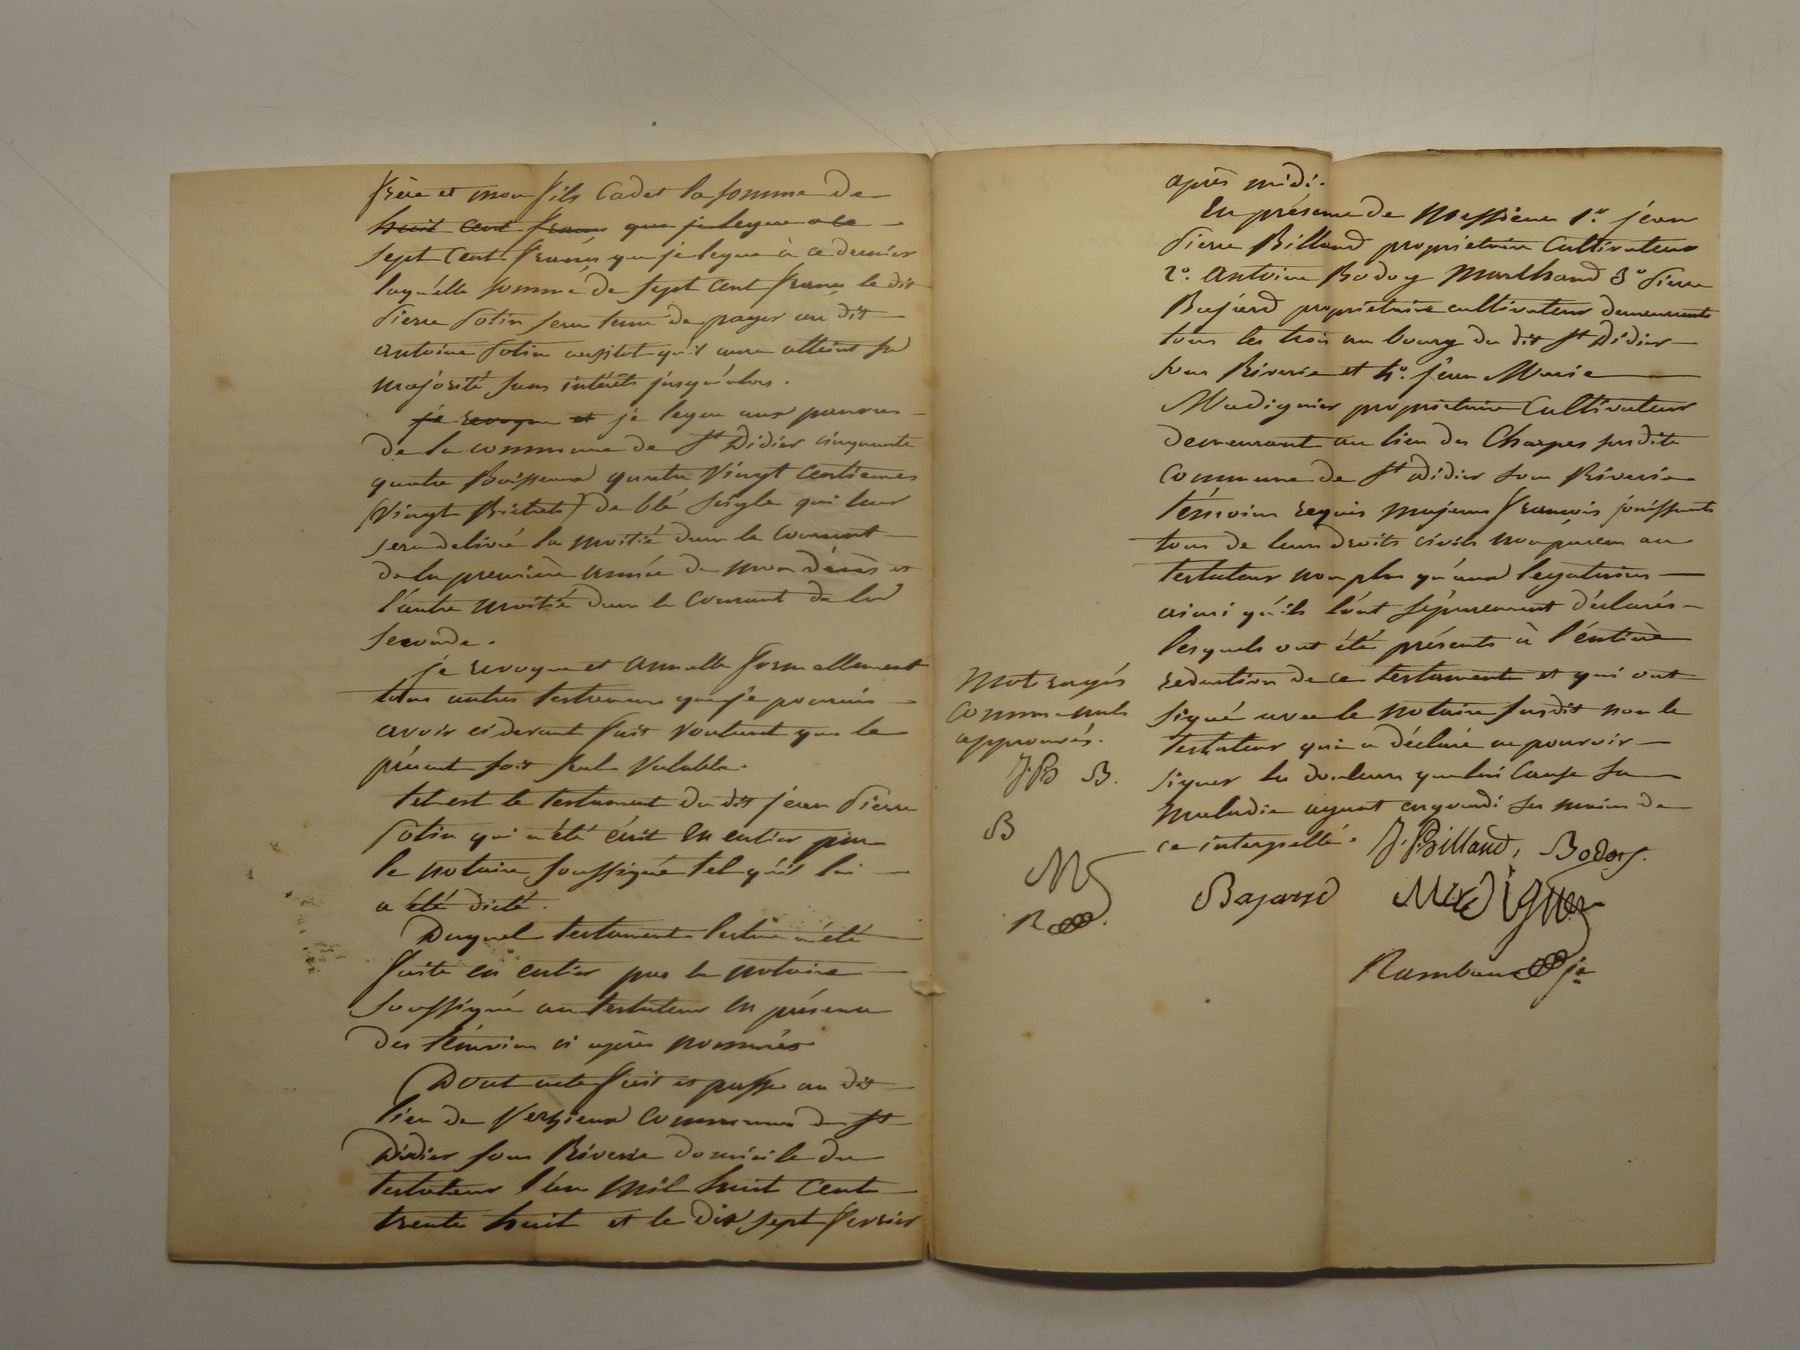 frère et mon fils Cadet la somme de
huit cent francs que je legue a ce
sept cent francs que je legue à ce dernier
laquelle somme de sept cent francs le dit
Pierre Potin sera tenu de payer au dit
antoine Potin aussitot qu'il aura atteint sa
majorité sans intérêts jusqu'alors.
je revoque et je legue aux pauvres
de la commune de St Didier cinquante
quatre Boisseaux quatre Vingt Centiemes
(Vingt Bichets) de blé seigle qui leur
sera delivré la moitié dans le courant
de la première année de mon décès et
l'autre moitié dans le Courant de la
seconde.
je revoque et annulle formellement
tous autres testamens que je pourrais
avoir ci devant fait voulant que le
présent soit seul Valable.
tel est le testament du dit jean Pierre
Potin qui a été écrit en entier par
le notaire soussigné tel qu'il lui
a été dicté.
Duquel testament lecture a été
faite en entier par le notaire
soussigné au testateur en présence
des témoins ci après nommés
Dont acte fait et passé au dit
lieu de Verzieux Commune de St
Didier sous Riverie domicile du
testateur l'an mil huit cent
trente huit et le dix sept fevrier
Mots rayés
Comme nuls
approuvés.
J.B B.
B
M
R
après midi.
En présence de Messieurs 1°. jean
Pierre Billand propriétaire Cultivateur
2°. Antoine Bodoy Marchand 3° Pierre
Bajard propriétaire cultivateur demeurants
tous les trois au bourg du dit St Didier
sous Riverie et 4°. jean Marie
Madignier propriétaire Cultivateur
demeurant au lieu des Charpes susdite
Commune de St Didier sous Riverie
témoins requis majeurs français jouissants
tous de leurs droits civils non parens au
testateur non plus qu'aux legataires
ainsi qu'ils l'ont séparement déclarés
lesquels ont été présents à l'entière
redaction de ce testament et qui ont
signé avec le notaire susdit non le
testateur qui a déclaré ne pouvoir
signer la douleur que lui cause sa
maladie ayant engourdi ses mains de
ce interpellé. J. Billand, Bodoy.
Bajard Madignier
Rambaud je